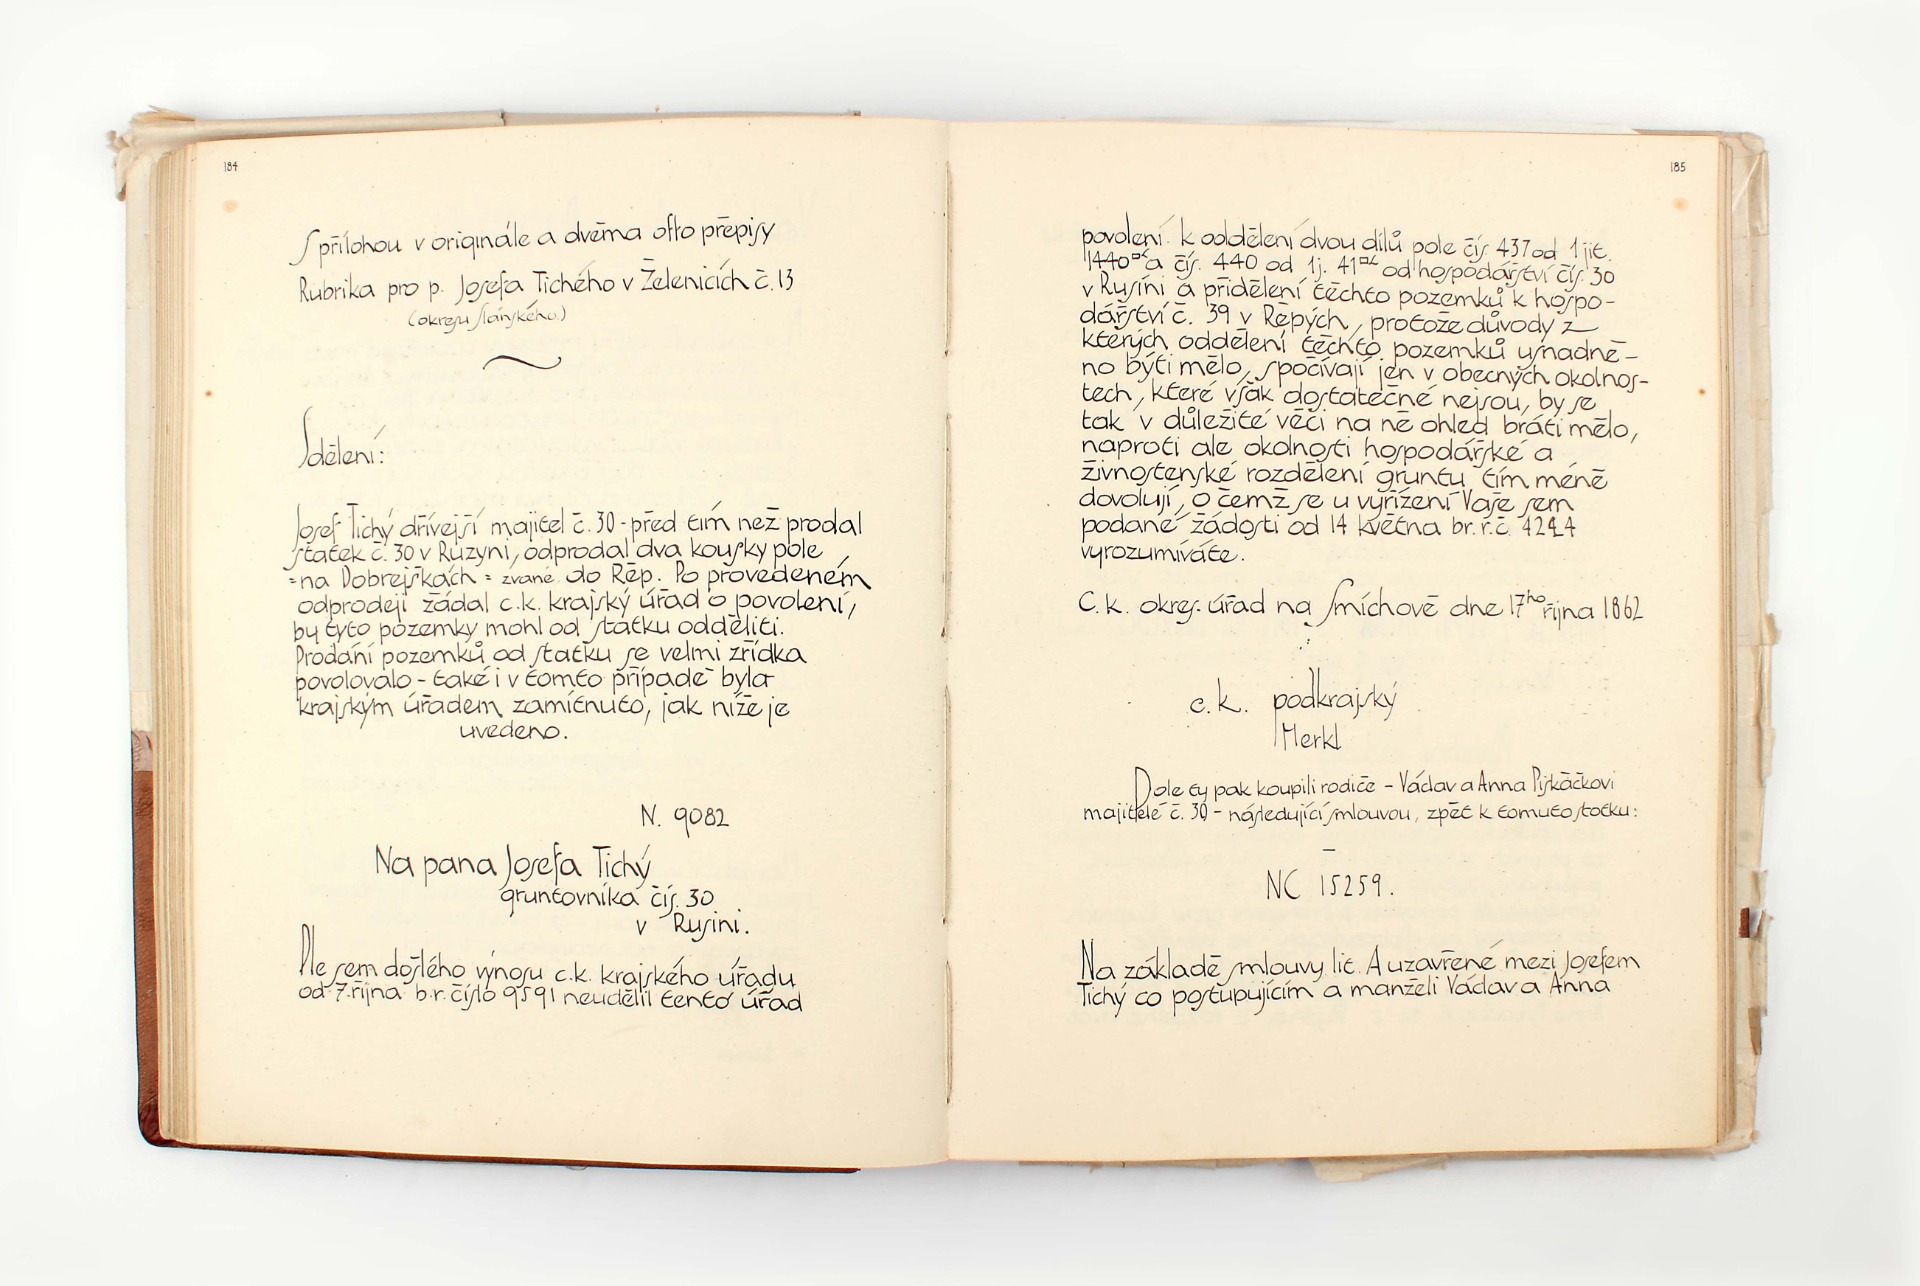 184
S přílohou v originále a dvěma ofto přepisy
Rubrika pro p. Josefa Tichého v Želenicích č. 13
(okresu slánského.)
Sdělení:
Josef Tichý dřívejší majitel č. 30 - před tím než prodal
statek č. 30 v Ruzyni, odprodal dva kousky pole
=na Dobrejškách = zvané do Řep. Po provedeném
odprodeji žádal c.k. krajský úřad o povolení,
by tyto pozemky mohl od statku odděliti.
Prodání pozemků od statku se velmi zřídka
povolovalo - také i v tomto případě byla
krajským úřadem zamítnuto, jak níže je
uvedeno.
N. 9082
Na pana Josefa Tichý
gruntovníka čís. 30
v Rusini.
Dle sem došlého výnosu c.k. krajského úřadu
od 7. října b.r. číslo 9591 neudělil tento úřad
185
povolení k oddělení dvou dílů pole čís. 437 od 1 jit.
1440□° a čís. 440 od 1j. 41□° od hospodářství čís. 30
v Rusíni a přidělení těchto pozemků k hospo-
dářství č. 39 v Řepých, protože důvody z
kterých oddělení těchto pozemků usnadně-
no býti mělo, spočívají jen v obecných okolnos-
tech, které však dostatečné nejsou, by se
tak v důležité věci na ně ohled bráti mělo,
naproti ale okolnosti hospodářské a
živnostenské rozdělení gruntu tím méně
dovolují, o čemž se u vyřízení Vaše sem
podané žádosti od 14 května br. r. č. 4224
vyrozumíváte.
C.k. okres. úřad na Smíchově dne 17ho října 1862
c. k. podkrajský
Merkl
Pole ty pak koupili rodiče - Václav a Anna Piskáčkovi
majitelé č. 30 - následující smlouvou, zpět k tomuto statku:
NC 15259.
Na základě smlouvy lit. A uzavřené mezi Josefem
Tichý co postupujícím a manželi Václav a Anna